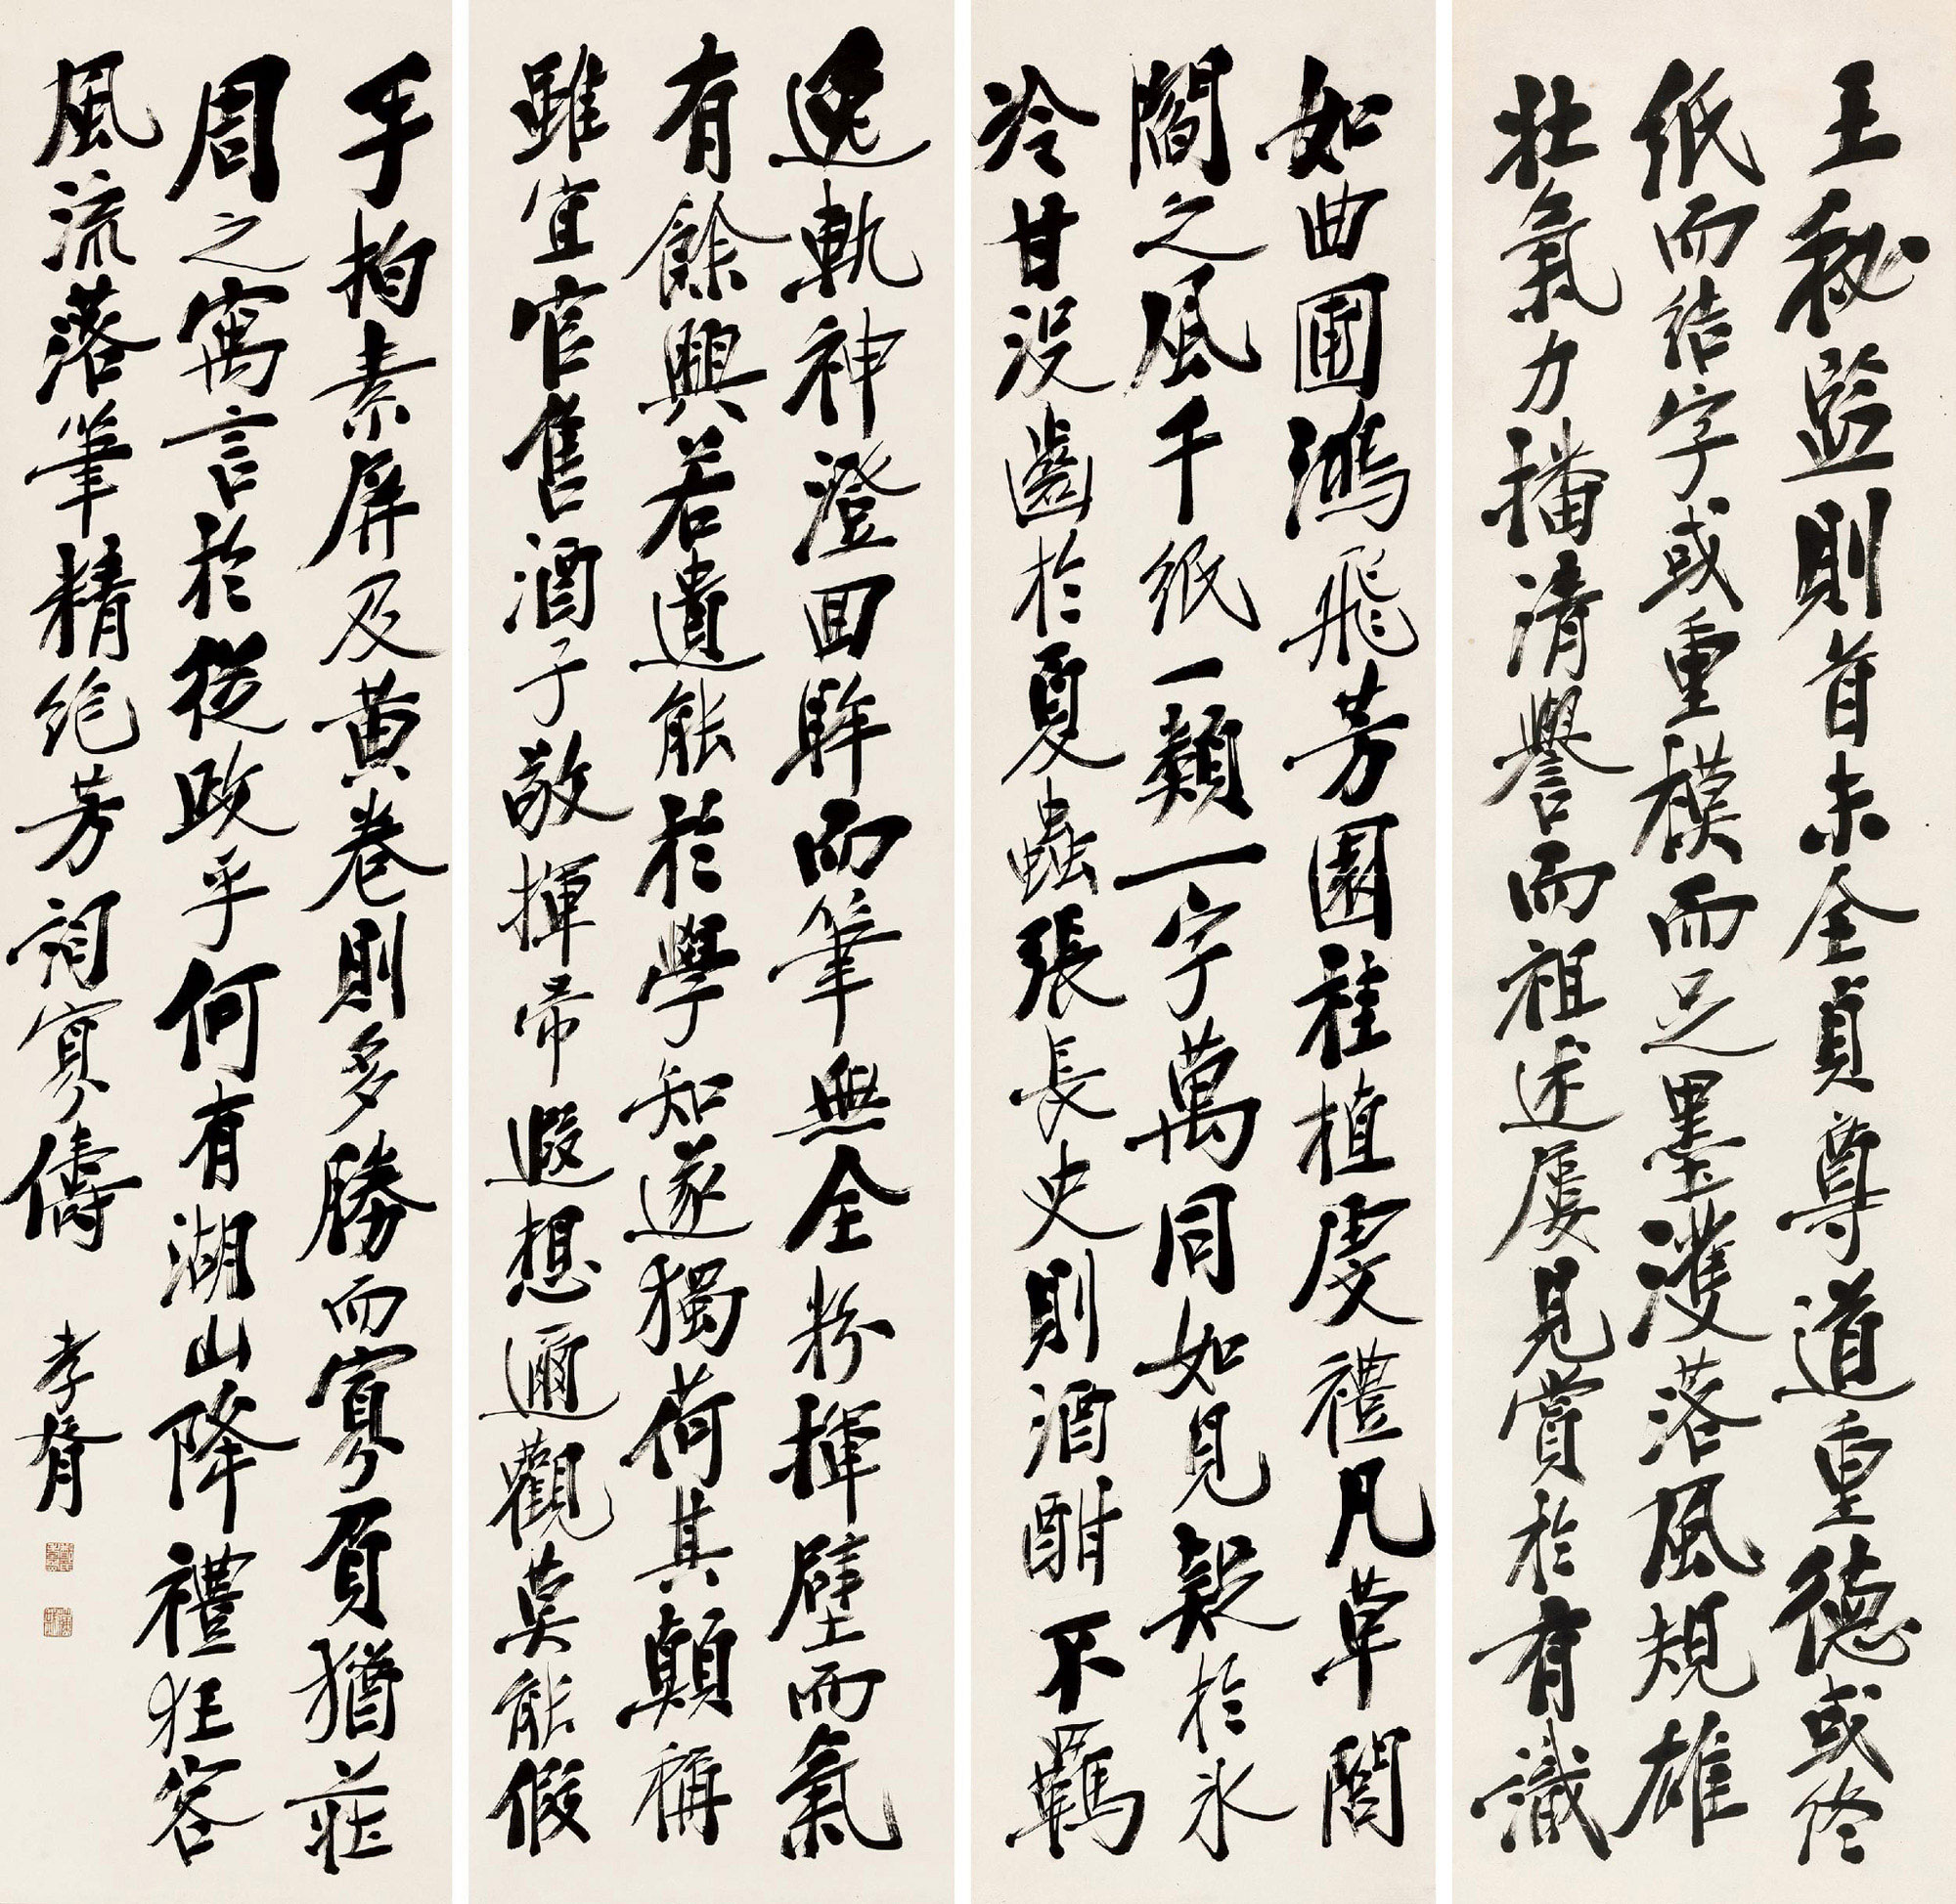 王秘監則首末全貞尊道重德或俢
紙而結字或重模而足墨濩落風規雄
壮氣力播清譽而祖述屢見賞於有識
如曲圃鴻飛芳園桂植虔禮凡草閭
閻之風千紙一類一字萬同如見疑於冰
冷甘没齒於夏蟲張長史則酒酣不羈
逸軌神澄回眸而筆無全粉揮壁而氣
有餘興若遺能於學知遂獨荷其顛稱
雖宜官售酒子敬揮帚遐想邇觀莫能假
手拘素屏及黄卷則多勝而寡負猶莊
周之寓言於從政乎何有湖山降禮狂客
風流落筆精絶芳詞寡儔
孝胥